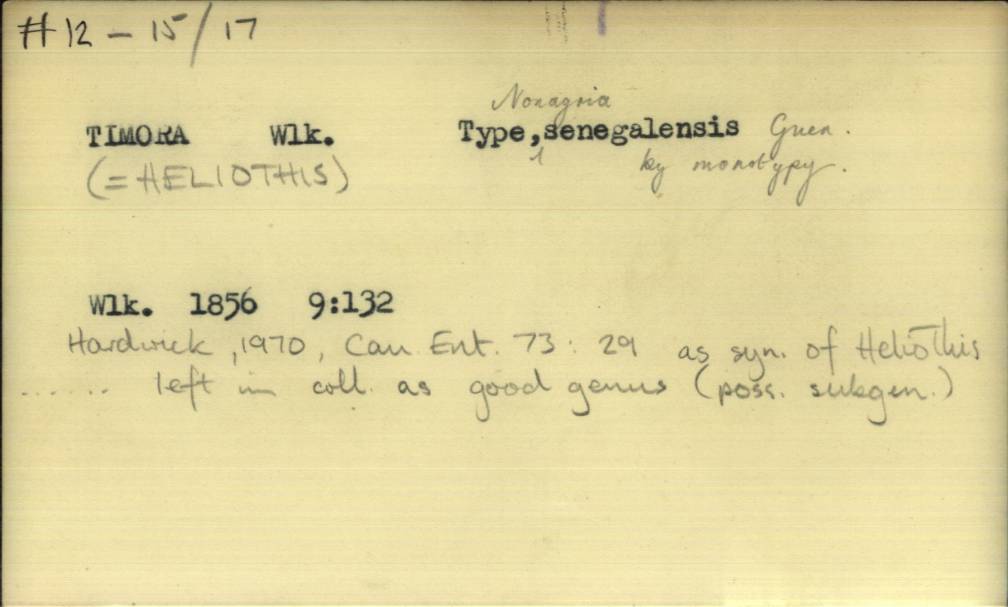 #12 - 15/17
Nonagria
TIMORA Wlk. Type, senegalensis Guen.
(=HELIOTHIS) by monotypy.
Wlk. 1856 9:132
Hardwick, 1970, Can Ent. 73: 29 as syn. of Heliothis
...... left in coll. as good genus (poss. subgen.)